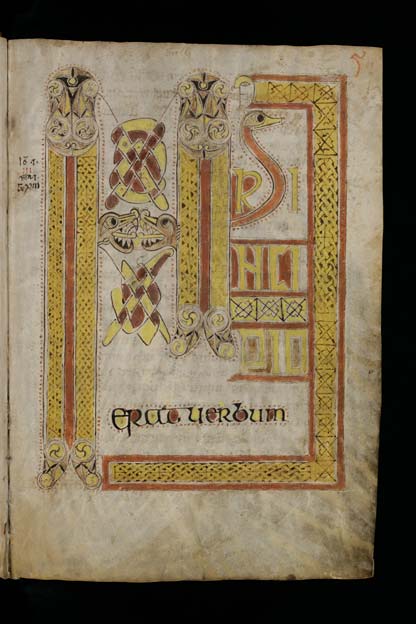 IN PRI
NCI
PIO
erat uerbum